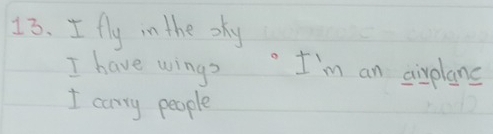 13. I fly in the sky
I have wings
I carry people
I'm an airplane